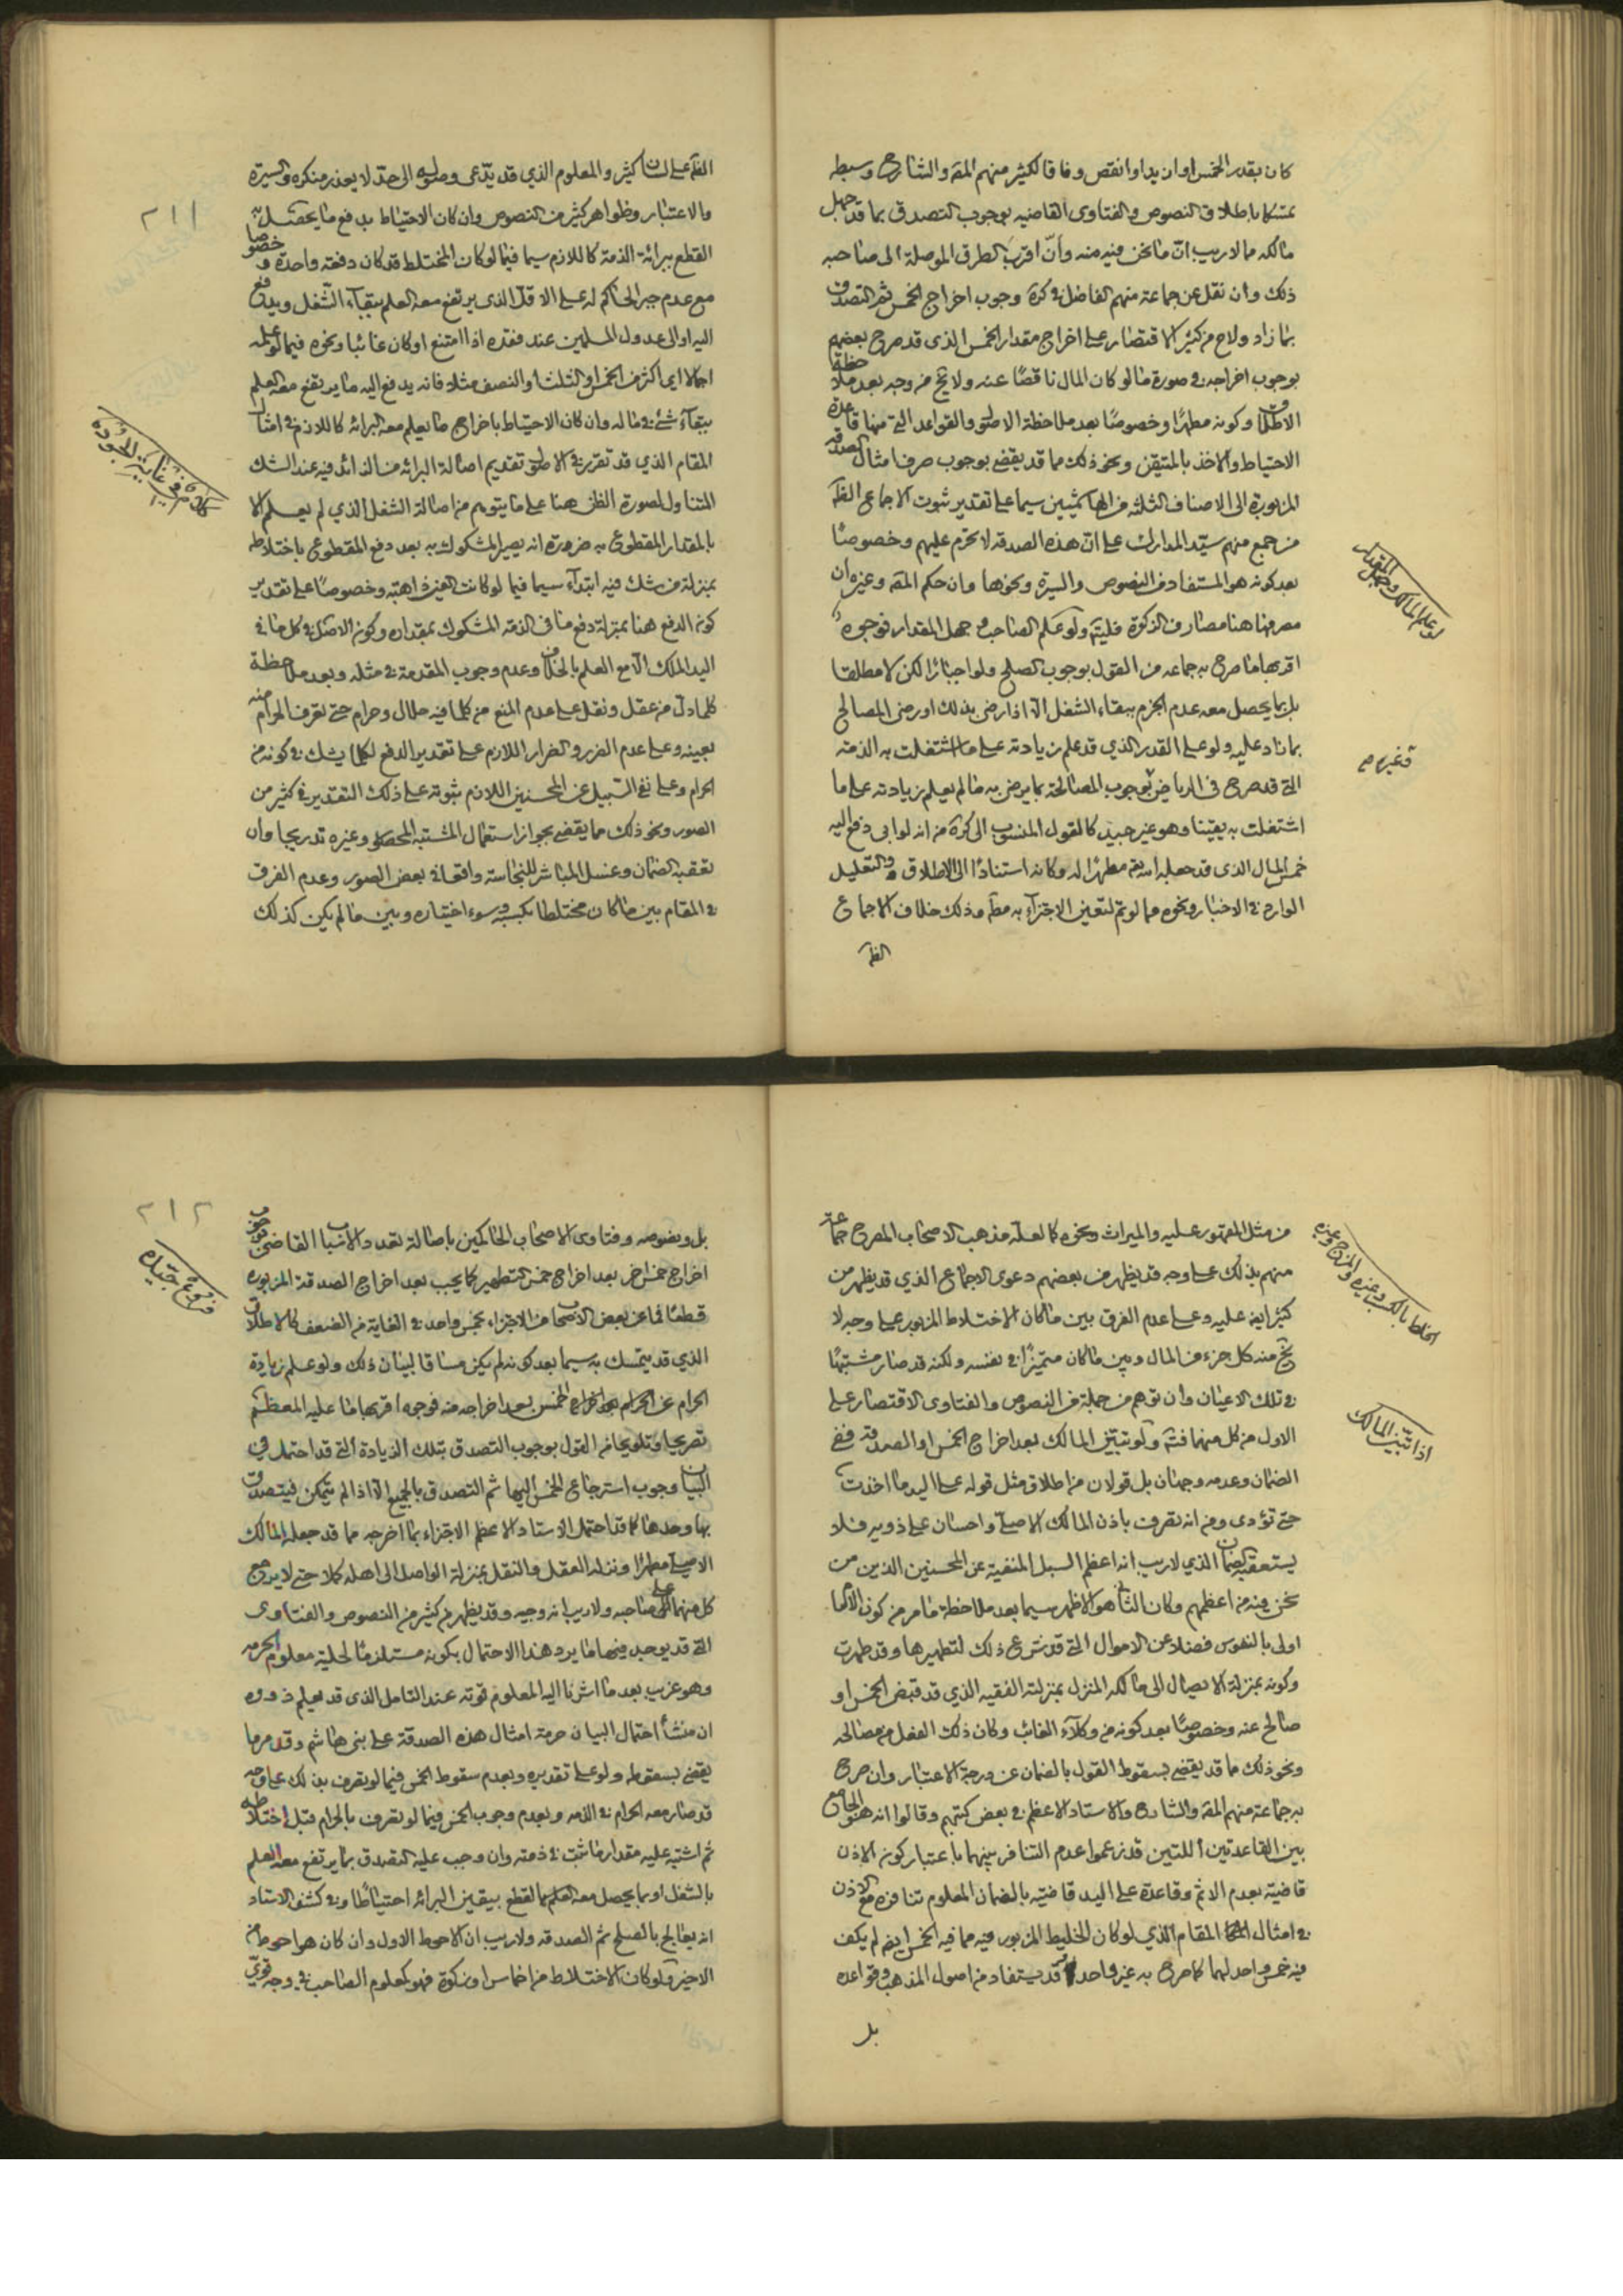 كان بقدر الخمس او ازيد او انقص وفاقا لكثير منهم المقه والشارح وسبطه
تمسكا باطلاق النصوص والفتاوى القاضيه بوجوب التصدق بما قد جهل
مالكه مما لا ريب انّ ما نحن فيه منه وأنّ اقرب الطرق الموصلة الى صاحبه
ذلك وان نقل عن جماعة منهم الفاضل في كرة وجوب اخراج الخمس ثم التصدق
بما زاد ولاح من كثير الاقتصار على اخراج مقدار الخمس الذى قد صرح بعضهم
بوجوب اخراجه في صورة ما لو كان المال ناقصًا عنه ولا يخ من وجه بعد ملاحظة
الاطلاق وكونه مطهرًا وخصوصًا بعد ملاحظة الاصول والقواعد التي منها قاعدة
الاحتياط والاخذ بالمتيقن ونحو ذلك مما قد يقضي بوجوب صرف امثال الصدقه
المزبورة الى الاصناف الثلثه من الهاشميين سيما على تقدير ثبوت الاجماع الظ
من جمع منهم سيّد المدارك على انّ هذه الصدقه لا تحرم عليهم وخصوصًا
بعد كونه هو المستفاد من النصوص والسيرة ونحوها وان حكم المقه وغيره ان
مصرفها هنا مصارف الزكوة فليتم ولو علم الصاحب وجهل المقدار فوجوه
اقربها ما صرح به جماعه من القول بوجوب الصلح ولو اجبارًا لكن لا مطلقا
بل بما يحصل معه عدم الجزم ببقاء الشغل الّا اذا رضى بذلك او رضى المصالح
بما زاد عليه ولو على القدر الذي قد علم زيادته على ما اشتغلت به الذمه
التي قد صرح في الرياض بوجوب المصالحة بما يرضى به ما لم يعلم زيادته على ما
اشتغلت به يقينا وهو غير جيد كالقول المنسوب الى كرة من انه لو ابى دفع اليه
خمس المال الذى قد جعله الله تع مطهرًا له وكانه استنادًا الى الاطلاق والتعليل
الوارد في الاخبار ونحوه مما لو تم لتعين الاجتزاء به مطه وذلك خلاف الاجماع
الظ
لو علم المالك وجهل المقدار
الظ على لسان كثير والمعلوم الذي قد يدّعى وصوله الى حدّ لا يعذر منكره والسيرة
والاعتبار وظواهر كثير من النصوص وان كان الاحتياط بدفع ما يحصل به
القطع ببرائة الذمة كاللازم سيما فيما لو كان المختلط قد كان دفعته واحدة وخصوصا
مع عدم جبر الحاكم له على الاقل الذى يرتفع معه العلم ببقاء الشغل ويدفع
اليه او الى عدول المسلمين عند فقده اذا امتنع او كان غائبا ونحوه فيما لو علمه
اجمالا اى اكثر من الخمس او الثلث او النصف مثلا فانه يدفع اليه ما يرتفع معه العلم
ببقاء شئ في ماله وان كان الاحتياط باخراج ما يعلم معه البرائه كاللازم في امثال
المقام الذي قد تقرر في الاصول تقديم اصالة البرائه من الزائد فيه عند الشك
المتناول لصورة الظن هنا على ما يتوهم من اصالة الشغل الذي لم يعلم الا
بالمقدار المقطوع به ضرورة انه يصير المشكوك به بعد دفع المقطوع باختلاطه
بمنزلة من شك فيه ابتداء سيما فيما لو كانت العين ذاهبه وخصوصًا على تقدير
كونه الدفع هنا بمنزلة دفع ما في الذمه المشكوك بمقداره وكون الاصل في كل ما في
اليد الملك الّا مع العلم بالخلاف وعدم وجوب المقدمة في مثله وبعد ملاحظة
كلما دل من عقل ونقل على عدم المنع من كلما فيه حلال وحرام حتى تعرف الحرام منه
بعينه وعلى عدم الضرر والضرار اللازم على تقدير الدفع لكلما يشك في كونه من
الحرام وعلى نفي السبيل عن المحسنين اللازم ثبوته على ذلك التقدير في كثير من
الصور ونحو ذلك مما يقضي بجواز استعمال المشتبه المحصور وغيره تدريجا وان
تعقبه الضمان وغسل المباشر للنجاسته واقعا في بعض الصور وعدم الفرق
في المقام بين ما كان مختلطا بكسبه وسوء اختياره وبين ما لم يكن كذلك
٢١١
من مثل المقهور عليه والميراث ونحوه كما لعله مذهب الاصحاب المصرح جماعة
منهم بذلك على وجه قد يظهر من بعضهم دعوى الاجماع الذي قد يظهر من
كثير ايضا عليه وعلى عدم الفرق بين ما كان الاختلاط المزبور على وجه لا
يخ منه كل جزء من المال وبين ما كان متميزًا في نفسه ولكنه قد صار مشتبهًا
في تلك الاعيان وان توهم من جملة من النصوص والفتاوى الاقتصار على
الاول من كل منهما فتم ولو تبيّن المالك بعد اخراج الخمس او الصدقه ففي
الضمان وعدمه وجهان بل قولان من اطلاق مثل قوله على اليد ما اخذت
حتى تؤدى ومن انه تصرف باذن المالك الاصلي واحسان على ذويه فلا
يستعقبه الضمان الذي لا ريب انه اعظم السبل المنفية عن المحسنين الذين من
نحن فيه من اعظمهم وكان الثاني هو الاظهر سيما بعد ملاحظة ما مر من كون الامام
اولى بالنفوس فضلا عن الاموال التي قد شرع ذلك لتطهيرها وقد طهرت
وكونه بمنزلة الايصال الى مالكه المنزل بمنزلته الفقيه الذي قد قبض الخمس او
صالح عنه وخصوصًا بعد كونه من وكلاء الغائب وكان ذلك الفعل من مصالحه
ونحو ذلك مما قد يقضي بسقوط القول بالضمان عن درجة الاعتبار وان صرح
به جماعة منهم المقه والشارح والاستاد الاعظم في بعض كتبهم وقالوا انه هو الجامع
بين القاعدتين اللتين قد زعموا عدم التنافر بينهما باعتبار كون الاذن
قاضيته بعدم الاثم وقاعدة على اليد قاضيته بالضمان المعلوم تنافره مع الاذن
في امثال المقام الذي لو كان الخليط المزبور فيه مما فيه الخمس ايضا لم يكف
فيه خمس واحد لهما كما صرح به غير واحد قد يستفاد من اصول المذهب وقواعده
بل
الخلط بالكسب وغيره والمزج وغيره
اذا تبيّن المالك
بل ونصوصه وفتاوى الاصحاب الحاكمين باصالة تعدد الاسباب القاضي بوجوب
اخراج خمس اخر بعد اخراج خمس التطهير كما يجب بعد اخراج الصدقة المزبوره
قطعًا فما عن بعض الاصحاب من الاجتزاء بخمس واحد في الغاية من الضعف كالاطلاق
الذي قد يتمسك به سيما بعد كونه لم يكن مساقا لبيان ذلك ولو علم زيادة
الحرام عن الخمس بعد اخراجه منه فوجوه اقربها ما عليه المعظم
تصريحا وتلويحا من القول بوجوب التصدق بتلك الزيادة التي قد احتمل في
البيان وجوب استرجاع الخمس اليها ثم التصدق بالجميع الّا اذا لم يتمكن فيتصدق
بها وحدها كما قد احتمل الاستاد الاعظم الاجتزاء بما اخرجه مما قد جعله المالك
الاصلي مطهرًا ونزله العقل والنقل بمنزلة الواصل الى اهله كملا حتى لا يرجع
كل منهما على صاحبه ولا ريب انه وجيه وقد يظهر من كثير من النصوص والفتاوى
التي قد يوجد فيها ما يرد هذا الاحتمال بكونه مستلزمًا لحلية معلوم الحرمه
وهو غريب بعد ما اشرنا اليه المعلوم قوته عند التامل الذى قد يعلم ذووه
ان منشأ احتمال البيان حرمة امثال هذه الصدقة على بنى هاشم وقد مر ما
يقضي بسقوطه ولو على تقديره وبعدم سقوط الخمس فيما لو تصرف بذلك على وجه
قد صار معه الحرام في الذمه وبعدم وجوب الخمس فيما لو تصرف بالحرام قبل اختلاطه
ثم اشتبه عليه مقدار ما ثبت في ذمته وان وجب عليه التصدق بما يرتفع معه العلم
بالشغل او بما يحصل معه القطع بيقين البرائه احتياطًا وفي كشف الاستاد
انه يعالج بالصلح ثم الصدقه ولا ريب ان الاحوط الاول وان كان هو احوط من
الاخير ولو كان الاختلاط من اخماس او زكوة فهو كمعلوم الصاحب في وجه قوي
٢١٢
فروع جيّده